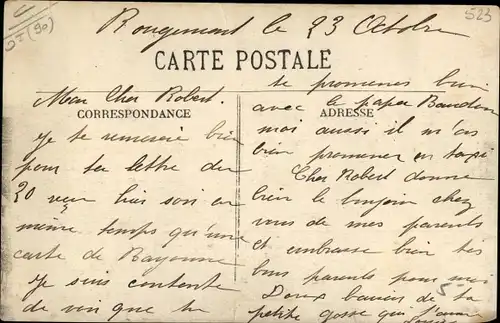 Rougemont le 23 Octobre
523
CARTE POSTALE
CORRESPONDANCE
ADRESSE
Mon Cher Robert.
Je te remercie bien
pour ta lettre du
20 hier soir en
même temps qu'une
carte de Bayonne
Je suis contente
de voir que tu
te promenes bien
avec le papa
moi aussi il m'as
bien promener en taxi
Cher Robert donne
bien le bonjour chez
vous de mes parents
et embrasse bien tes
bons parents pour moi
Doux baiser de ta
petite gosse qui t'aime